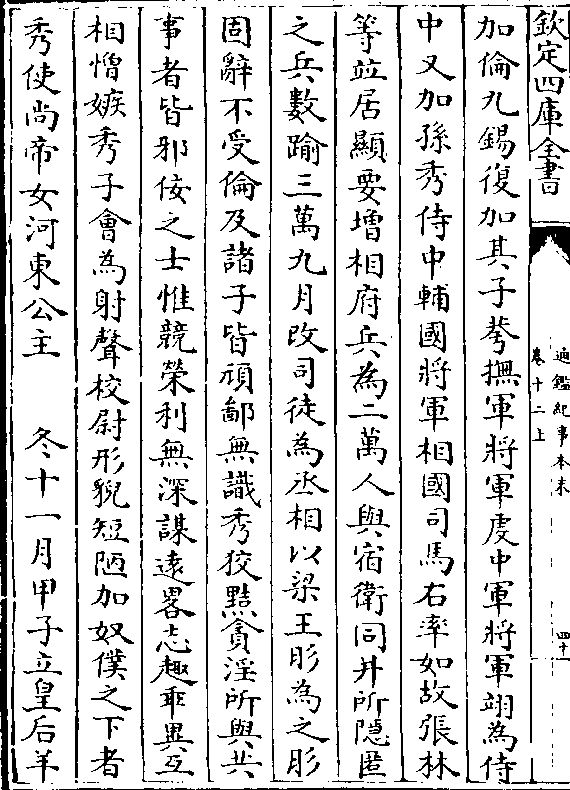 欽定四庫全書
通鑑紀事本末
卷十二上
四十一
加倫九錫復加其子荂撫軍將軍虔中軍將軍翊為侍
中又加孫秀侍中輔國將軍相國司馬右率如故張林
等並居顯要增相府兵為二萬人與宿衛同并所隠匿
之兵數踰三萬九月改司徒為丞相以梁王肜為之肜
固辭不受倫及諸子皆頑鄙無識秀狡黠貪淫所與共
事者皆邪佞之士惟競榮利無深謀遠畧志趣乖異互
相憎嫉秀子會為射聲校尉形貎短陋如奴僕之下者
秀使尚帝女河東公主　　冬十一月甲子立皇后羊